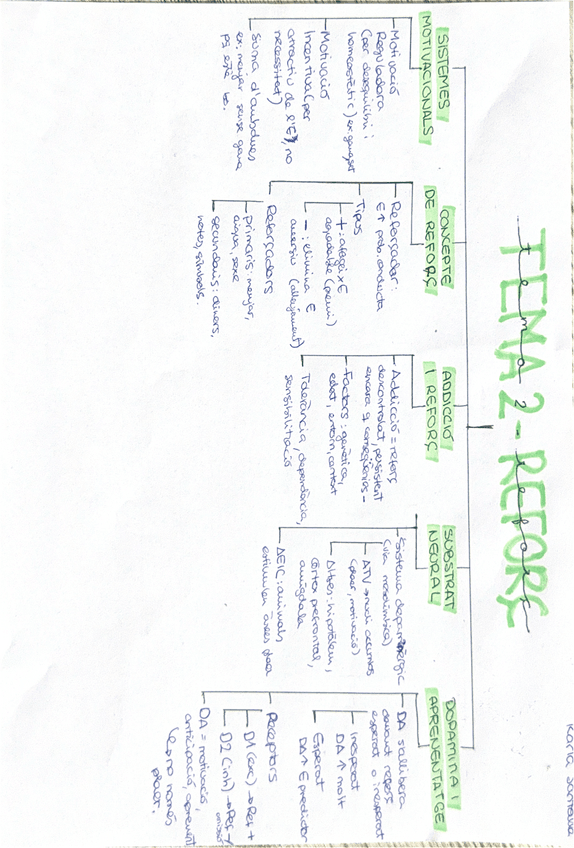 Karla
TEMA 2 - REFORÇ
tema 2 - reforç
SISTEMES
MOTIVACIONALS
Motivació
Reguladora
(per desequilibri
homeostàtic)
Motivació
Incentiva (per
atractiu de l'E, no
necessitat)
Suma d'ambdues
ex: menjar sense gana
pq està bo.
CONCEPTE
DE REFORÇ
Reforçador:
E ↑ prob. conducta
Tipus
+: afegeix E
agradable (premi)
-: elimina E
aversiu (alleujament)
Reforçadors
primaris: menjar,
aigua, sexe
secundaris: diners,
notes, símbols.
ADDICCIÓ
I REFORÇ
Addicció = reforç
descontrolat, persistent
encara q conseqüències -
Factors: genètica,
edat, entorn, context
Tolerància, dependència,
sensibilització
SUBSTRAT
NEURAL
Sistema dopaminèrgic
(via mesolímbica)
ATV → nucli accumbens
(plaer, motivació)
Altres: hipotàlem,
còrtex prefrontal,
amígdala
AEIC: animals
estimulen àrees plaer
DOPAMINA I
APRENENTATGE
DA s'allibera
davant reforç
esperat o inesperat
Inesperat
DA ↑ molt
Esperat
DA ↑ E predictor
Receptors
D1 (exc) → Ref +
D2 (inh) → Ref -/
DA = motivació,
anticipació, aprenent
(et no només
plaer.